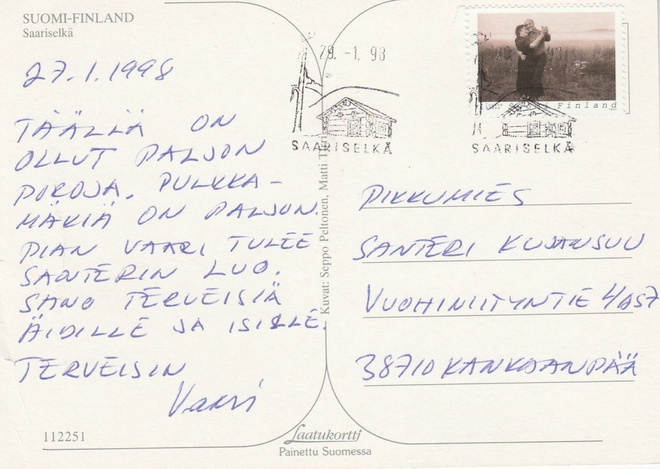 SUOMI-FINLAND
Saariselkä
27.1.1998
TÄÄLLÄ ON
OLLUT PALJON
POROJA. PULKKA-
MÄKIÄ ON PALJON.
PIAN VAARI TULEE
SANTERIN LUO.
SANO TERVEISIÄ
ÄIDILLE JA ISILLE.
TERVEISIN
Vaari
112251
Kuvat: Seppo Peltonen, Matti
Laatukortti
Painettu Suomessa
29.-1.98
SAARISELKÄ
Finland
SAARISELKÄ
PIKKUMIES
SANTERI KUJANSUU
VUOHINIITYNTIE 4 AS7
38710 KANKAANPÄÄ